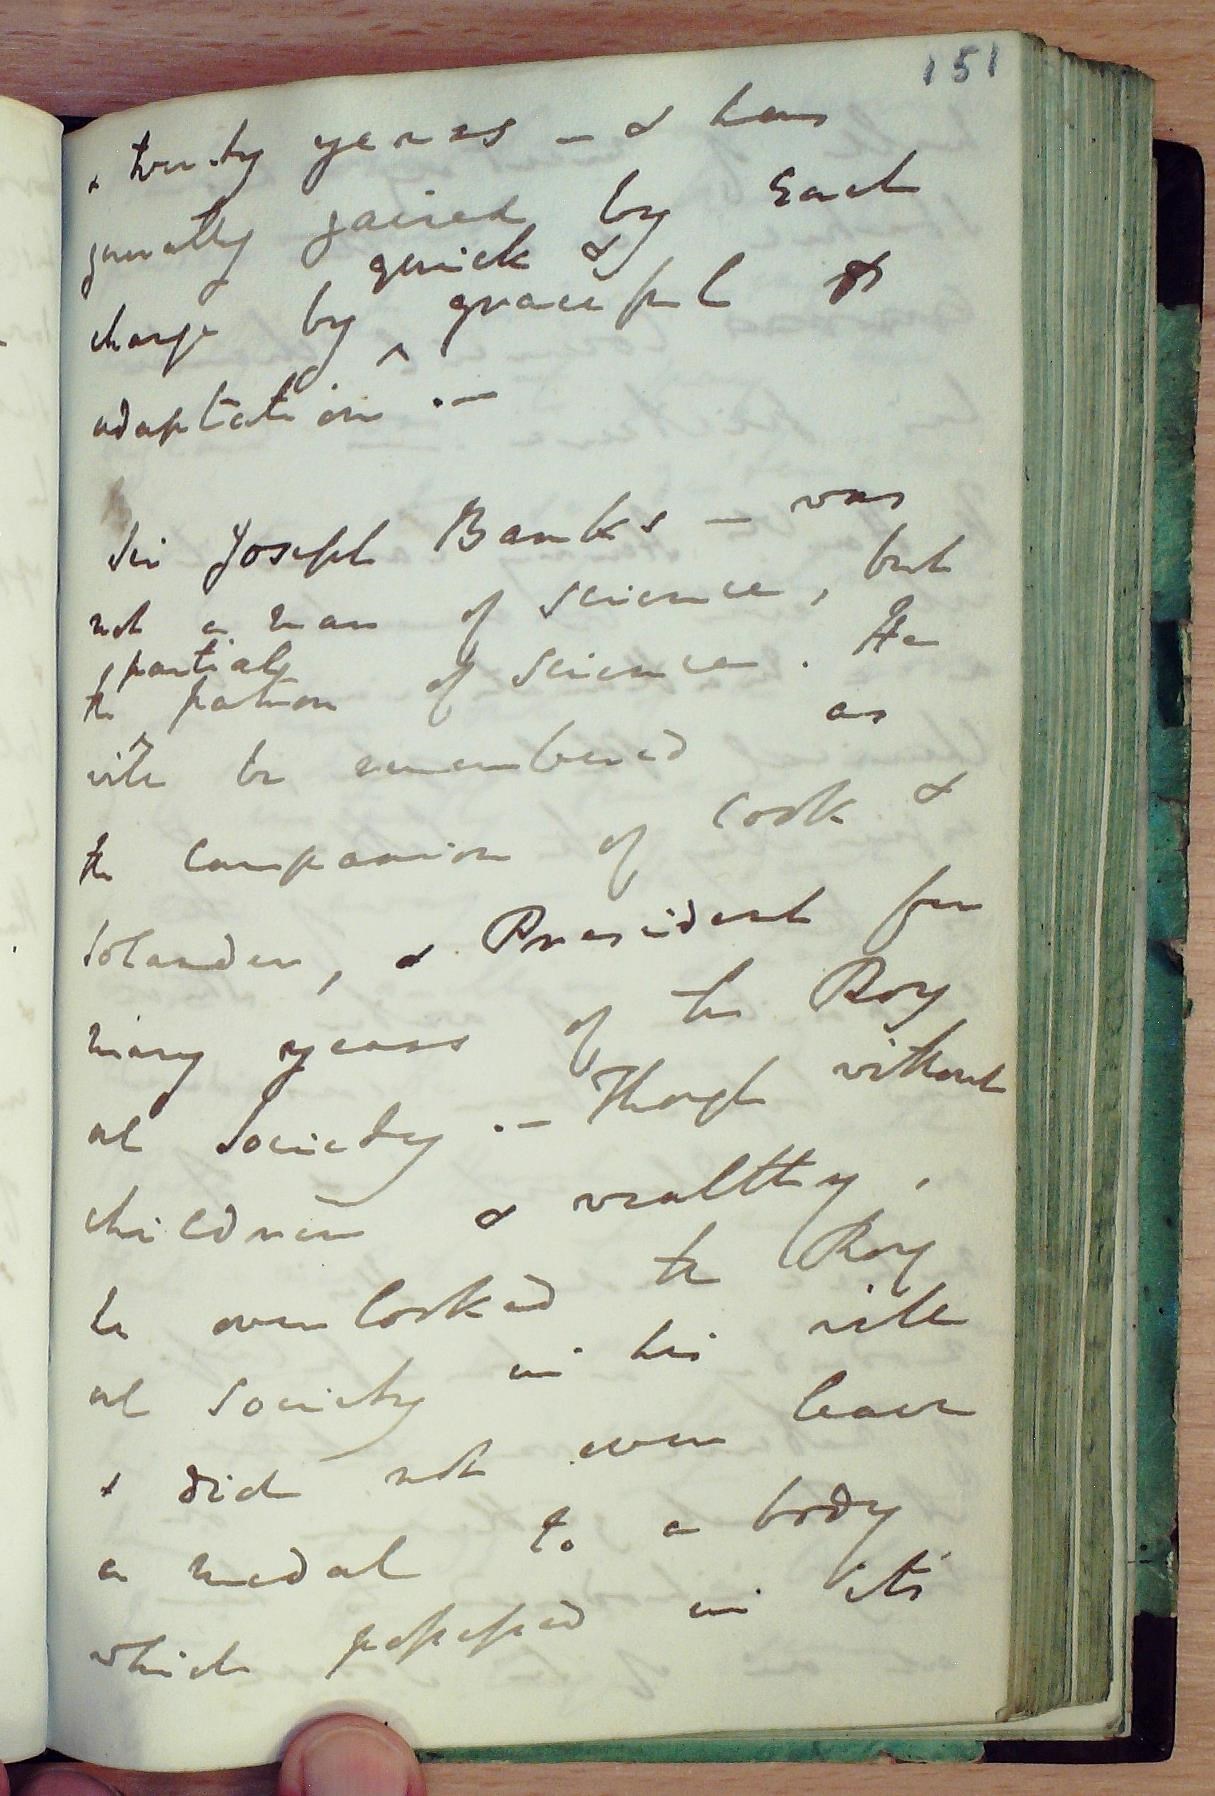 151
& twenty years – & has
generally gained by each
quick &
change by ^ graceful
adaptation. –
Sir Joseph Banks – was
not a man of science, but
partial
the patron of science. He
will be remembered as
the companion of Cook &
Solander, & President for
many years of the Roy
al Society. – Though without
children & wealthy,
he overlooked the Roy
al Society in his will
& did not even leave
a medal to a body
which possessed in its